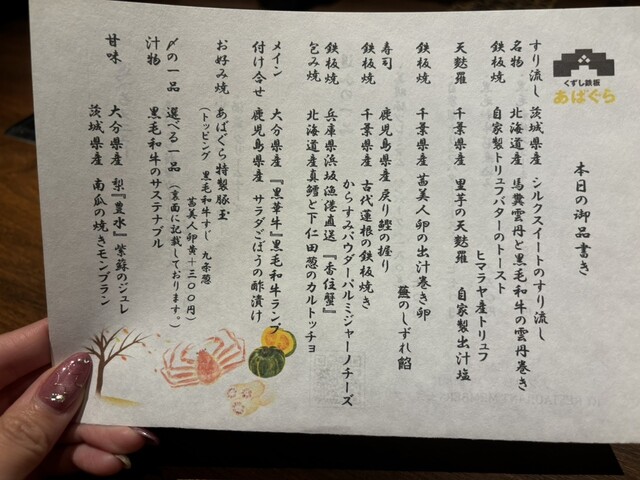 くずし鉄板
あばぐら
本日の御品書き
すり流し 茨城県産 シルクスイートのすり流し
名物 北海道産 馬糞雲丹と黒毛和牛の雲丹巻き
鉄板焼 自家製トリュフバターのトースト
ヒマラヤ産トリュフ
天麩羅 千葉県産 里芋の天麩羅 自家製出汁塩
鉄板焼 千葉県産 茜美人卵の出汁巻き卵
蕪のしずれ餡
寿司 鹿児島県産 戻り鰹の握り
鉄板焼 千葉県産 古代蓮根の鉄板焼き
からすみパウダーパルミジャーノチーズ
鉄板焼 兵庫県浜坂漁港直送 『香住蟹』
包み焼 北海道産真鱈と下仁田葱のカルトッチョ
メイン 大分県産 『黒華牛』黒毛和牛ランプ
付け合せ 鹿児島県産 サラダごぼうの酢漬け
お好み焼 あばぐら特製豚玉
(トッピング 黒毛和牛すじ 九条葱
茜美人卵黄+300円)
〆の一品 選べる一品 (裏面に記載しております。)
汁物 黒毛和牛のサステナブル
甘味 大分県産 梨『豊水』紫蘇のジュレ
茨城県産 南瓜の焼きモンブラン